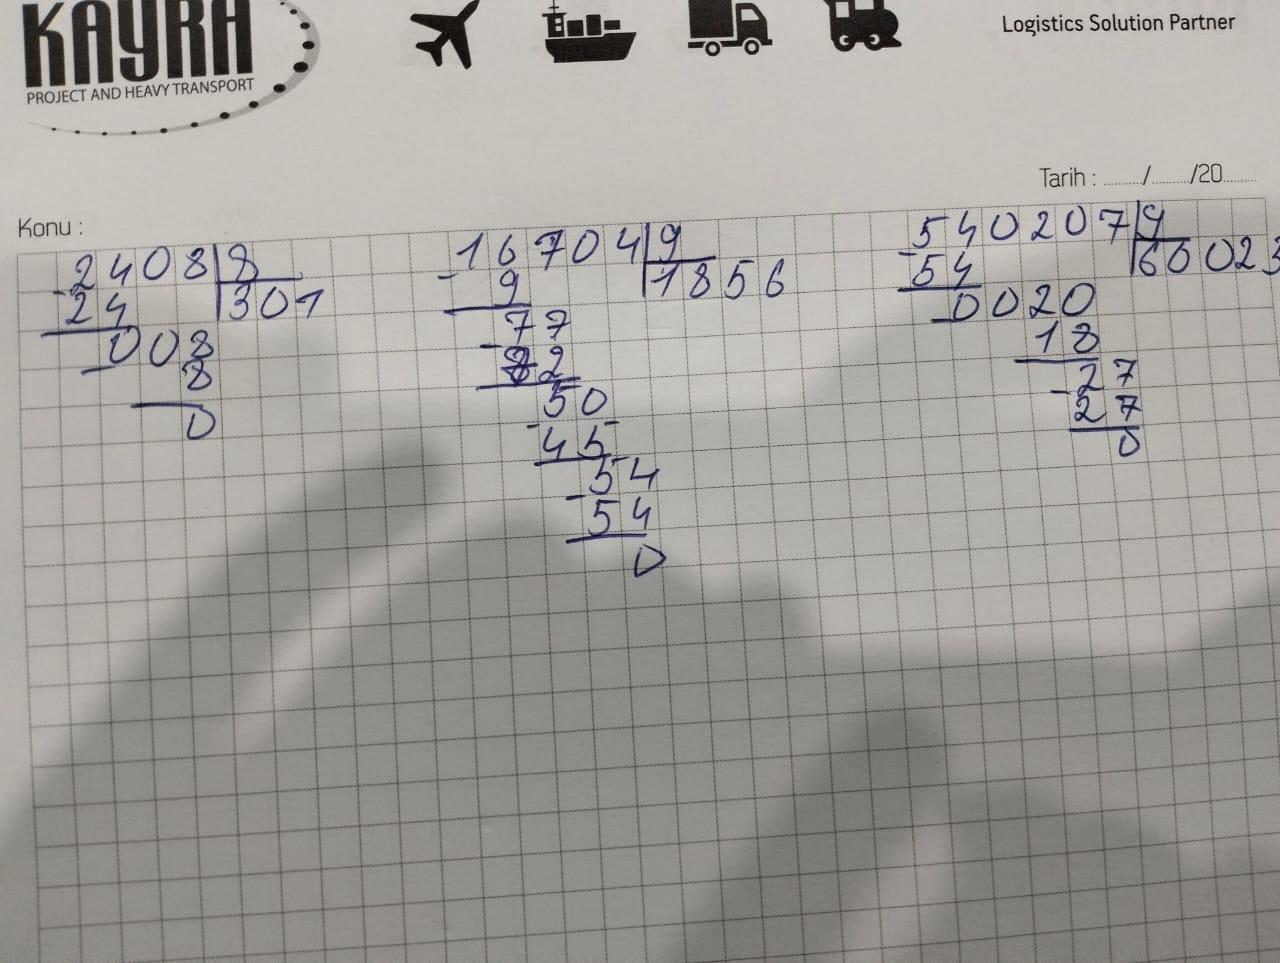 KAYRA
PROJECT AND HEAVY TRANSPORT
Logistics Solution Partner
Tarih : ......../......../20........
Konu :
2408 | 8
301
- 24
008
- 8
0
16704 | 9
1856
- 9
77
- 72
50
- 45
54
- 54
0
540207 | 9
60023
- 54
0020
- 18
27
- 27
0